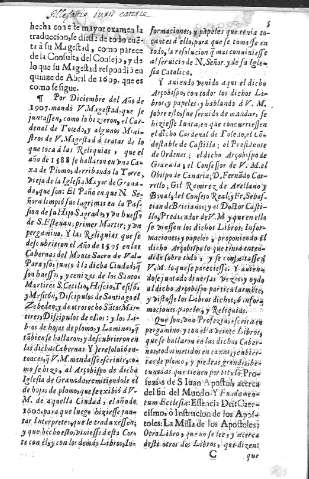 5
cho con el mayor examen la
traduccion, se diesse de todo cuẽ-
ta a su Magestad, como parece
de la Consulta del Consejo, y de
lo que su Magestad respondiò en
quinze de Abril de 1609. que es
como se sigue.
¶ Por Diziembre del Año de
1607. mandò V. Magestad que se
juntassen, como lo hizieron, el Car-
denal de Toledo, y algunos Minis-
tros de V. Magestad à tratar de lo
que toca à las Reliquias, y que el
año de 1588 se hallaron en vna Ca-
xa de Plomo, derribando la Torre,
vieja de la Iglesia Mayor de Grana-
do, que son: El Paño en que N. Seño-
ra limpiò las lagrimas en la Pas-
sion de su Hijo Sagrado, y vn huesso
de S. Estevan, primer Martir, y vn
pergamino. Y las Reliquias que se
descubrieron el Año de 1595 en las
Cabernas del Monte Sacro de Val-
Parayso, junto à la dicha Ciudad, q̃
son huessos, y cenizas de los Santos
Martires S. Cecilio, Hiscio, Tesifõ,
y Mesiton, Discipulos de Santiago el
Zebedeo, y de otros ocho Sãtos Mar-
tires, Discipulos de ellos: y los Li-
bros de hojas de plomo y Laminas, q̃
tãbiẽ se hallaron y descubrieron en
las dichas Cabernas. Y se resolviò en-
tonces, q̃ V. M. mandasse escrivir, co-
mo se hizo, al Arçobispo de dicha
Iglesia de Granada, remitiendole el
de hojas de plomo, que se exsibiò à V.
M. de aquella Ciudad, el año de
1600. para que luego hiziesse juntar
Interpretes, que le traduxessen;
y que hecho esto, viniesse à esta Cor-
te con èl, y con los demàs Libros, In-
formaciones, y papeles que tenia to-
cantes à ello, para que se tomasse en
todo, la resolucion q̃ mas conviniesse
al servicio de N. Señor, y de su Igle-
sia Catolica.
Y aviendo venido aqui el dicho
Arçobispo, con todos los dichos Li-
bros, y papeles; y hablando à V. M.
sobre esto, fue servido de mandar, se
hiziesse Iunta, en que concurriessen
el dicho Cardenal de Toledo, el Cõ-
destable de Castilla; el Presidente
de Ordenes; el dicho Arçobispo de
Granada; el Confessor de V. M. el
Obispo de Canaria; D. Fernãdo Car-
rillo, Gil Ramirez de Arellano y
Bonal, del Consejo Real, y Fr. Sebas-
tian de Bricianos; y el Doctor Casti-
llo, Predicador de V. M y que en ella
se viessen los dichos Libros, Infor-
maciones, y papeles, y proponiendo el
dicho Arçobispo lo que tenia enten-
dido sobre todo, y se consultasse à
V. M. lo que se pareciesse. Y avien-
dose juntado diversas vezes, y oydo
al dicho Arçobispo particularmẽte,
y vistose los Libros dichos, è infor-
maciones, papeles, y Reliquias.
Que son, vna Profecia escrita en
pergamino, y con èl à veinte Libros,
que se hallaron en las dichas Caber-
nas,
de plomo, y piedras grandes
que tienen por titulo: Pro-
fecias de S Iuan Apostol, acerca
del fin del Mundo. Y Fundamen-
tum Ecclesiæ: Essencia Dei: Cate-
cismo, ò Instruccion de los Apos-
toles: La Missa de los Apostoles:
Otro Libro, que no se lee; y acerca
destos otros dos Libros, que dizen:
C que